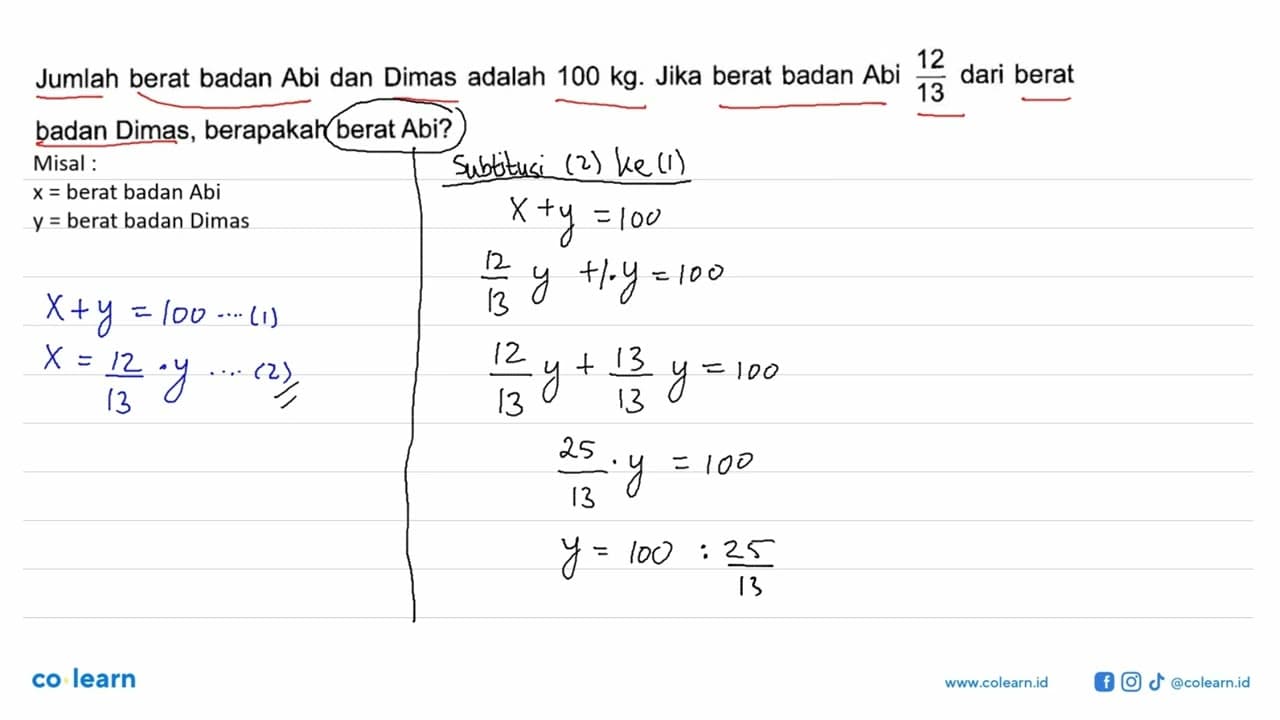 Jumlah berat badan Abi dan Dimas adalah 100 kg. Jika berat badan Abi 12/13 dari berat
badan Dimas, berapakah berat Abi?
Misal :
x = berat badan Abi
y = berat badan Dimas
x + y = 100 .... (1)
x = 12/13 . y .... (2)
Subtitusi (2) ke (1)
x + y = 100
12/13 y + 1. y = 100
12/13 y + 13/13 y = 100
25/13 . y = 100
y = 100 : 25/13
co learn
www.colearn.id
@colearn.id